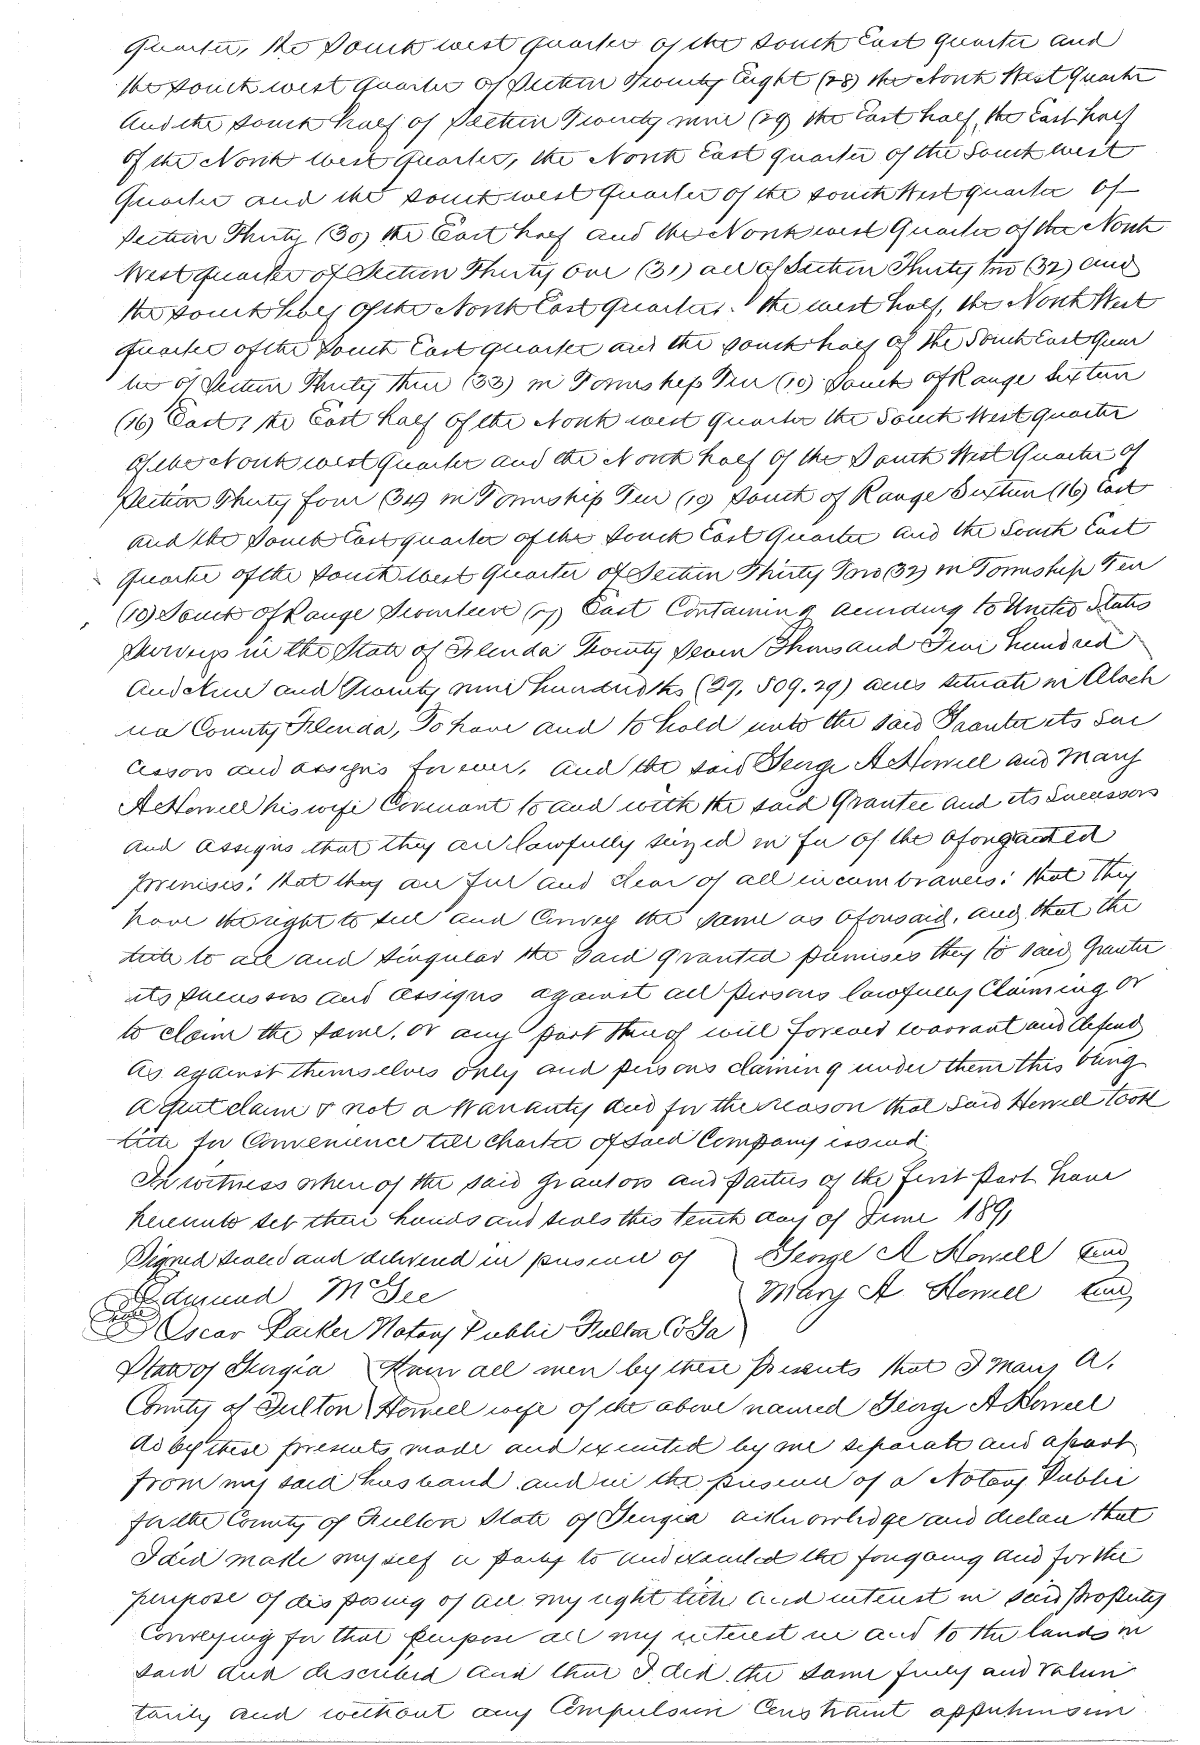 quarter, the South west quarter of the South East quarter and
the South west quarter of Section Twenty Eight (28) the North West Quarter
and the South half of Section Twenty nine (29) the East half, the East half
of the North west quarter, the North East quarter of the South west
quarter and the South west quarter of the South West quarter of
Section Thirty (30) the East half and the North west Quarter of the North
West quarter of Section Thirty One (31) all of Section Thirty Two (32) and
the South half of the North East Quarter. the west half, the North West
quarter of the South East quarter and the South half of the South East Quar
ter of Section Thirty three (33) in Township Ten (10) South of Range Sixteen
(16) East, the East half of the North west quarter the South West quarter
of the North west quarter and the North half of the South West Quarter of
Section Thirty four (34) in Township Ten (10) South of Range Sixteen (16) East
and the South East quarter of the South East Quarter and the South East
quarter of the South west quarter of Section Thirty Two (32) in Township Ten
(10) South of Range Seventeen (17) East Containing according to United States
Surveys in the State of Florida Twenty Seven Thousand Five hundred
and Nine and Twenty nine hundredths (27,509.29) acres situate in Alach
ua County Florida, To have and to hold unto the said Grantee its Suc
cessors and assigns forever. And the said George A Howell and Mary
A Howell his wife Covenant to and with the said Grantee and its Successors
and assigns that they are lawfully seized in fee of the aforegranted
premises: that they are free and clear of all incumbrances: that they
have the right to sell and Convey the same as aforesaid, and that the
title to all and singular the said granted premises they to said Grantee
its Successors and assigns against all persons lawfully Claiming or
to claim the same, or any part thereof will forever warrant and defend
as against themselves only and persons claiming under them this being
a quit claim & not a Warranty deed for the reason that said Howell took
title for Convenience till Charter of said Company issued
In witness whereof the said grantors and parties of the first part have
hereunto set their hands and seals this tenth day of June 1891
Signed sealed and delivered in presence of } George A Howell Seal
Edmund McGee } Mary A Howell Seal
Oscar Parker Notary Public Fulton Co Ga
State of Georgia } Know all men by these Presents that I Mary A.
County of Fulton } Howell wife of the above named George A Howell
do by these presents made and executed by me separate and apart
from my said husband and in the presence of a Notary Public
for the County of Fulton State of Georgia acknowledge and declare that
I did make myself a party to and executed the foregoing and for the
purpose of disposing of all my right title and interest in said property
Conveying for that purpose all my interest in and to the lands in
said deed described and that I did the same freely and Volun
tarily and without any Compulsion Constraint apprehension